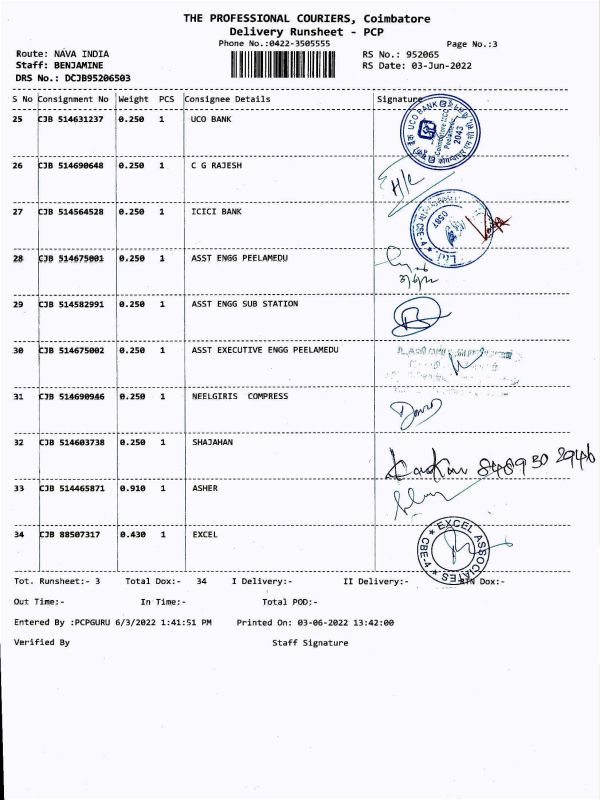 THE PROFESSIONAL COURIERS, Coimbatore
Delivery Runsheet - PCP
Phone No.:0422-3505555
Page No.:3
Route: NAVA INDIA
RS No.: 952065
Staff: BENJAMINE
RS Date: 03-Jun-2022
DRS No.: DCJB95206503
S No Consignment No Weight PCS Consignee Details Signature
25 CJB 514631237 0.250 1 UCO BANK
UCO BANK
2043
26 CJB 514690648 0.250 1 C G RAJESH
H/c
27 CJB 514564528 0.250 1 ICICI BANK
0587
CBE-4
Ltd.
28 CJB 514675001 0.250 1 ASST ENGG PEELAMEDU
29 CJB 514582991 0.250 1 ASST ENGG SUB STATION
30 CJB 514675002 0.250 1 ASST EXECUTIVE ENGG PEELAMEDU
31 CJB 514690946 0.250 1 NEELGIRIS COMPRESS
32 CJB 514603738 0.250 1 SHAJAHAN
84893 0 2946
33 CJB 514465871 0.910 1 ASHER
34 CJB 88507317 0.430 1 EXCEL
EXCEL ASSOCIATES CBE-4
Tot. Runsheet:- 3 Total Dox:- 34 I Delivery:- II Delivery:- RTN Dox:-
Out Time:- In Time:- Total POD:-
Entered By :PCPGURU 6/3/2022 1:41:51 PM Printed On: 03-06-2022 13:42:00
Verified By Staff Signature